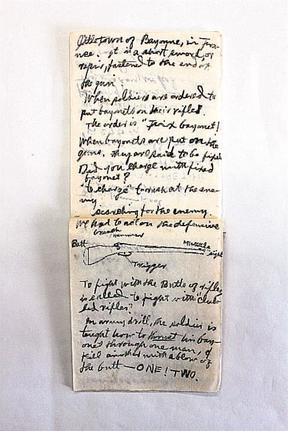 town of Bayonne, in Fra-
nce. It is a short sword or
fastened to the end of
the gun
When soldiers are ordered to
put bayonets on their rifles.
The order is "Fix bayonet!
When bayonets are put on the
guns, they are said to be fixed
Did you charge with fixed
bayonet?
"to charge" to rush at the ene-
my
searching for the enemy.
We had to act on the defensive
Butt
Muzzle
Trigger
To fight with the Butts of rifles
is called "to fight with club-
bed rifles".
In army drill, the soldier is
taught how to his bay-
onet through one man, &
kill another with a blow of
the butt — ONE! TWO.